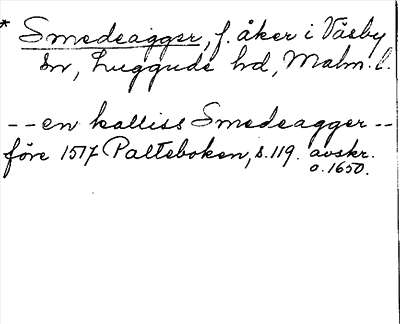 * Smedeagger, f. åker i Väsby
sn, Luggude hd, Malm. l.
-- en kalliss Smedeagger --
före 1517 Palteboken, s. 119. avskr.
o. 1650.